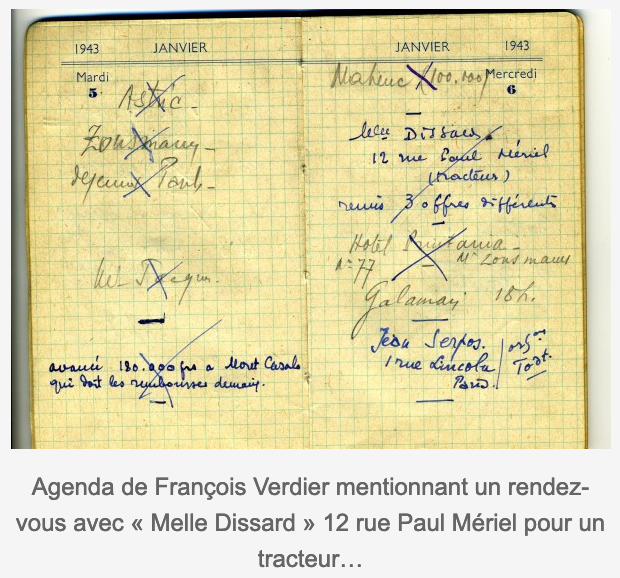 1943 JANVIER
Mardi
5
Astuc -
Zousmann -
déjeuner Toul -
avancé 180.000 frs a Moret Casals
qui doit les rembourser demain.
JANVIER 1943
Mahuc (100.000)
Mercredi
6
Melle Dissard.
12 rue Paul Mériel
(tracteurs)
remis 3 offres différents
Hotel Printania -
N° 77 - Mr Zousmann
Galaman 18h.
Jean Serpos.
1 rue Lincoln
Paris.
orgon
Todt.
Agenda de François Verdier mentionnant un rendez-
vous avec « Melle Dissard » 12 rue Paul Mériel pour un
tracteur…